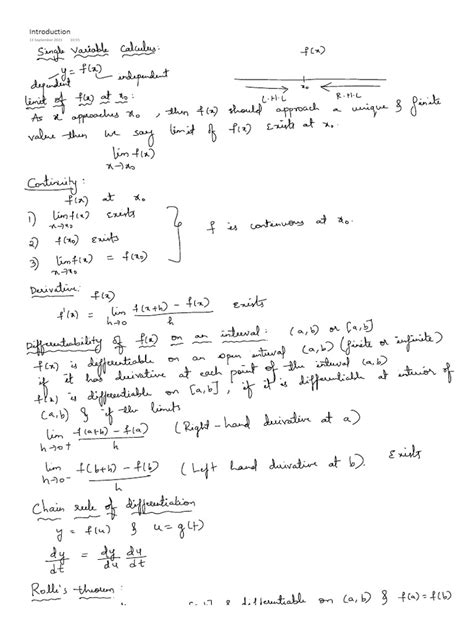 Introduction
13 September 2021
Single Variable Calculus:
f(x)
y = f(x)
dependent
independent
x₀
L.H.L
R.H.L
limit of f(x) at x₀:
As x approaches x₀, then f(x) should approach a unique & finite
value then we say limit of f(x) exists at x₀.
lim f(x)
x→x₀
Continuity:
f(x) at x₀
1) lim f(x) exists
x→x₀
2) f(x₀) exists
3) lim f(x) = f(x₀)
x→x₀
f is continuous at x₀.
Derivative: f(x)
f'(x) = lim f(x+h) - f(x) / h exists
h→0
Differentiability of f(x) on an interval: (a,b) or [a,b]
f(x) is differentiable on an open interval (a,b) (finite or infinite)
if it has derivative at each point of the interval (a,b)
f(x) is differentiable on [a,b], if it is differentiable at interior of
(a,b) & if the limits
lim f(a+h) - f(a) / h (Right-hand derivative at a)
h→0+
lim f(b+h) - f(b) / h (Left hand derivative at b). exists
h→0-
Chain rule of differentiation
y = f(u) & u = g(t)
dy/dt = dy/du du/dt
Rolle's theorem:
& differentiable on (a,b) & f(a)=f(b)